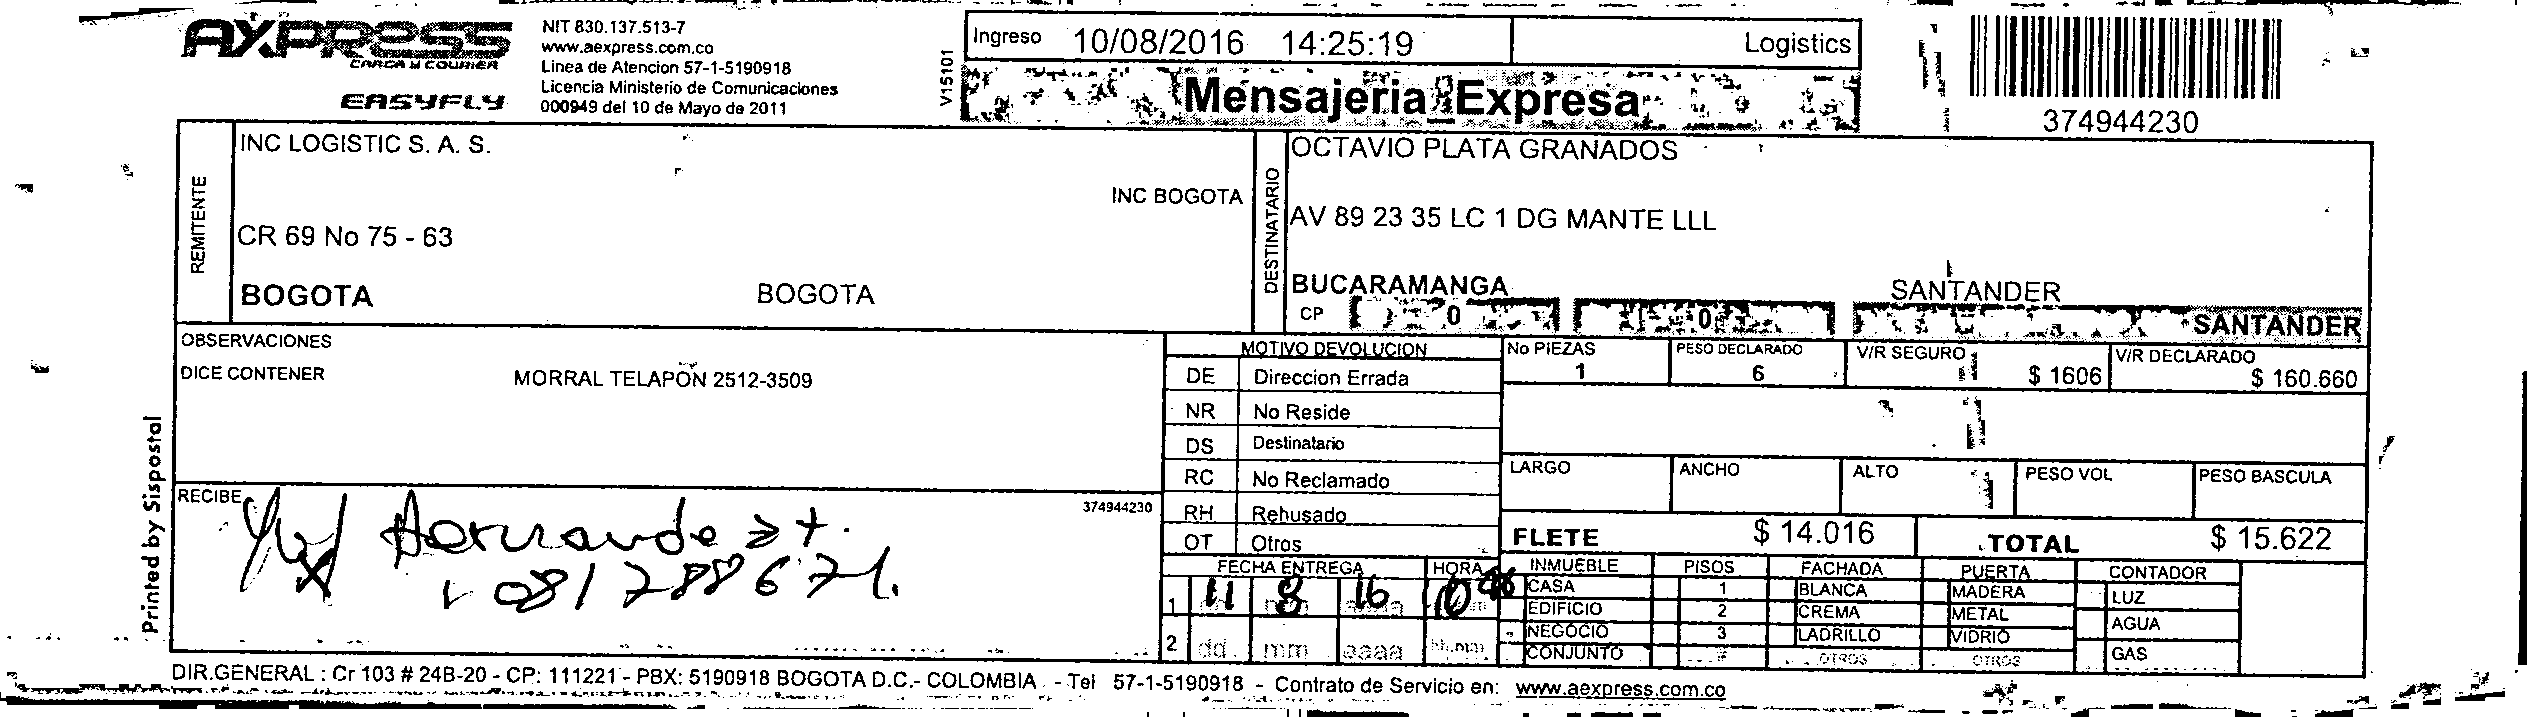 AXPRESS
CARGA Y COURIER
EASYFLY
NIT 830.137.513-7
www.aexpress.com.co
Linea de Atencion 57-1-5190918
Licencia Ministerio de Comunicaciones
000949 del 10 de Mayo de 2011
V15101
Ingreso 10/08/2016 14:25:19 Logistics
Mensajeria Expresa
374944230
REMITENTE
INC LOGISTIC S. A. S.
INC BOGOTA
CR 69 No 75 - 63
BOGOTA BOGOTA
DESTINATARIO
OCTAVIO PLATA GRANADOS
AV 89 23 35 LC 1 DG MANTE LLL
BUCARAMANGA SANTANDER
CP 0 0 SANTANDER
OBSERVACIONES
DICE CONTENER MORRAL TELAPON 2512-3509
MOTIVO DEVOLUCION
DE Direccion Errada
NR No Reside
DS Destinatario
RC No Reclamado
RH Rehusado
OT Otros
No PIEZAS PESO DECLARADO V/R SEGURO V/R DECLARADO
1 6 $ 1606 $ 160.660
LARGO ANCHO ALTO PESO VOL PESO BASCULA
FLETE $ 14.016 TOTAL $ 15.622
RECIBE 374944230
FECHA ENTREGA HORA
1 11 8 16
2 dd mm aaaa hh:mm
INMUEBLE PISOS FACHADA PUERTA CONTADOR
CASA 1 BLANCA MADERA LUZ
EDIFICIO 2 CREMA METAL AGUA
NEGOCIO 3 LADRILLO VIDRIO GAS
CONJUNTO # OTROS OTROS
Printed by Sispostal
DIR.GENERAL : Cr 103 # 24B-20 - CP: 111221 - PBX: 5190918 BOGOTA D.C.- COLOMBIA - Tel 57-1-5190918 - Contrato de Servicio en: www.aexpress.com.co